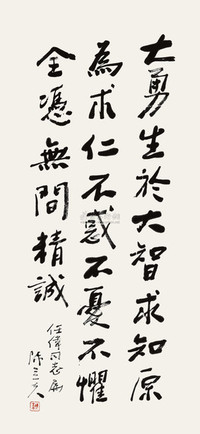 大勇生於大智求知原
為求仁不惑不憂不懼
全憑無間精誠
任偉同志屬
陳立夫